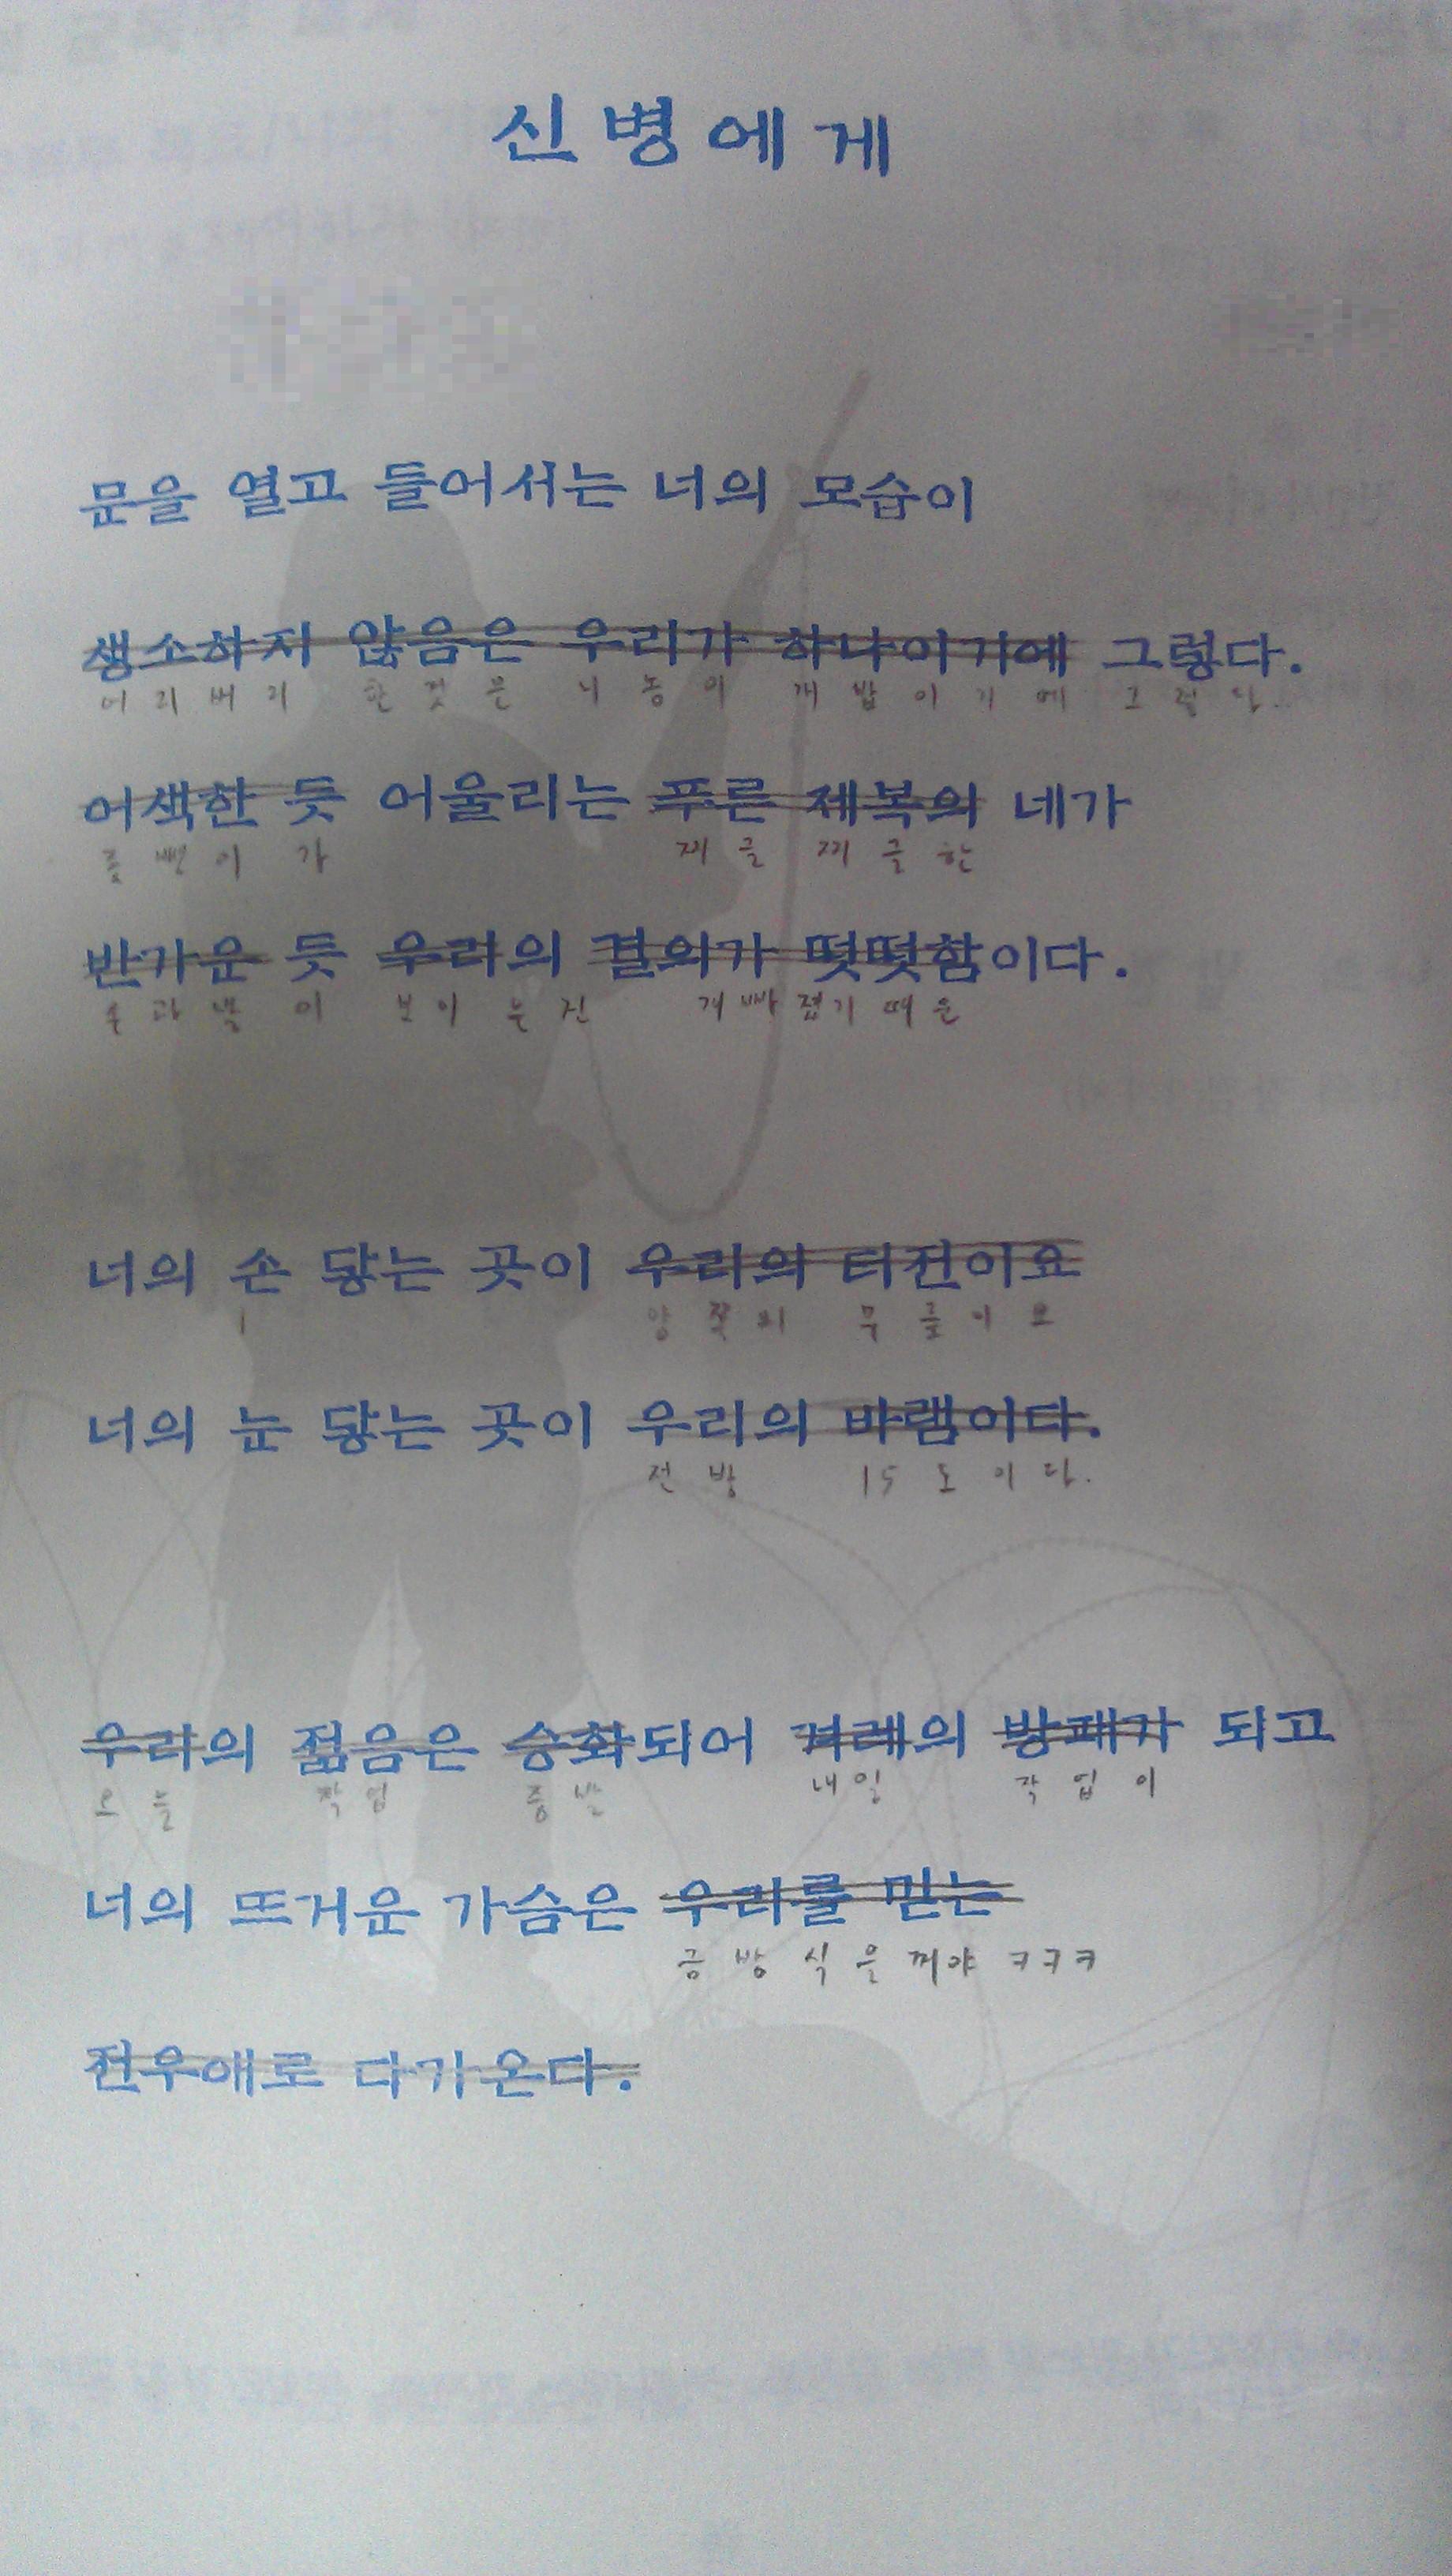 신병에게
문을 열고 들어서는 너의 모습이
생소하지 않음은 우리가 하나이기에 그렇다.
어리버리 한것은 니놈이 개밥이기에 그렇다.
어색한 듯 어울리는 푸른 제복의 네가
이가 찌글찌글한
반가운 듯 우리의 결의가 떳떳함이다.
이 보이는건 개빠졌기때문
너의 손 닿는 곳이 우리의 터전이요
양쪽의 무릎이요
너의 눈 닿는 곳이 우리의 바램이다.
전방 15도이다.
우리의 젊음은 승화되어 겨레의 방패가 되고
오늘 작업 증발 내일 작업이
너의 뜨거운 가슴은 우리를 믿는
금방 식을꺼야 ㅋㅋㅋ
전우애로 다가온다.